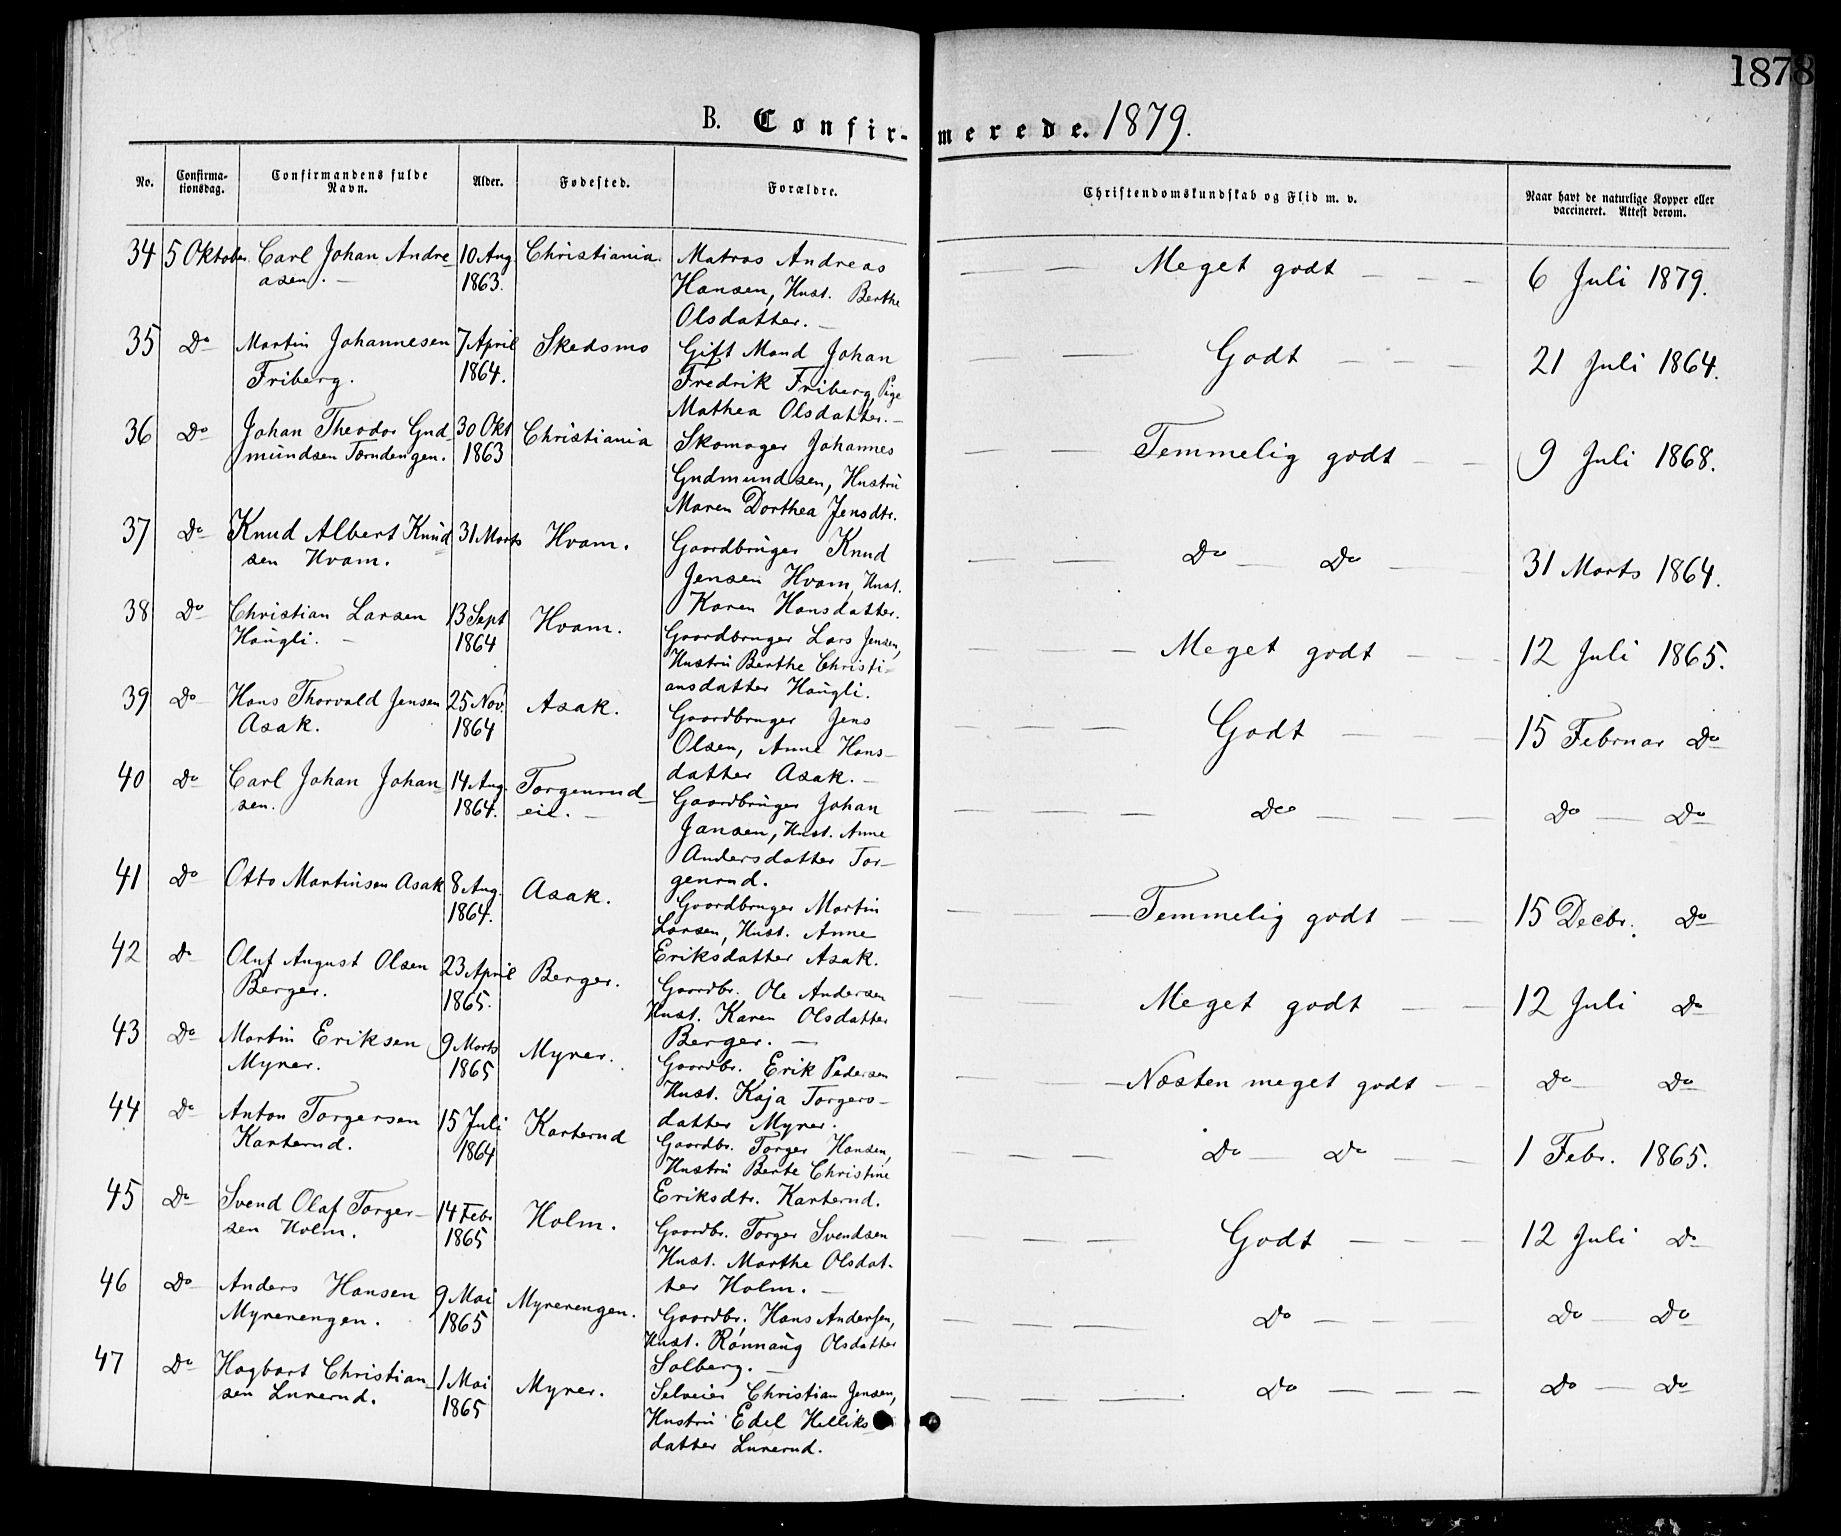 1878
B. Confir- merede. 1879.
No. Confirma-tionsdag. Confirmandens fulde Navn. Alder. Fødested. Forældre. Christendomskundskab og Flid m. v. Naar havt de naturlige Kopper eller vaccineret. Attest derom.
34 5 Oktober Carl Johan Andre- 10 Aug. Christiania. Matros Andreas — — Meget godt — — — 6 Juli 1879.
asen. — 1863. Hansen, Hust. Berthe
Olsdatter. —
35 Do Martin Johannesen 7 April Skedsmo Gift Mand Johan — — Godt — — — 21 Juli 1864.
Friberg. 1864. Fredrik Friberg, Pige
Mathea Olsdatter. —
36 Do Johan Theodor Gud- 30 Okt Christiania Skomager Johannes — — Temmelig godt — — 9 Juli 1868.
mundsen Tørndengen. 1863 Gudmundsen, Hustru
Maren Dorthea Jensdtr.
37 Do Knud Albert Knud- 31 Marts Hvam. Gaardbruger Knud — — Do — Do — — 31 Marts 1864.
sen Hvam. Jensen Hvam, Hust.
Karen Hansdatter.
38 Do Christian Larsen 13 Sept Hvam. Gaardbruger Lars Jensen, — — — Meget godt — — — 12 Juli 1865.
Haugli. — 1864 Hustru Berthe Christi-
ansdatter Haugli.
39 Do Hans Thorvald Jensen 25 Nov. Asak. Gaardbruger Jens — — — Godt — — — 15 Februar Do
Asak. 1864 Olsen, Anne Hans-
datter Asak. —
40 Do Carl Johan Johan- 14 Aug. Torgenrud- Gaardbruger Johan — — — Do — — — — Do — Do
sen. 1864. eie. — Jansen, Hust. Anne
Andersdatter Tor-
genrud.
41 Do Otto Martinsen Asak 8 Aug. Asak. Gaardbruger Martin — — — Temmelig godt — — 15 Decbr. Do
1864. Larsen, Hust. Anne
Eriksdatter Asak.
42 Do Oluf August Olsen 23 April Berger. Gaardbr. Ole Andersen — — Meget godt — — 12 Juli Do
Berger. 1865. Hust. Karen Olsdatter
Berger. —
43 Do Martin Eriksen 9 Marts Myrer. Gaardbr. Erik Pedersen — — — Næsten meget godt — — Do Do
Myrer. 1865 Hust. Kaja Torgers-
datter Myrer.
44 Do Anton Torgersen 15 Juli Karterud Gaardbr. Torger Hansen, — — — Do — Do — — 1 Febr. 1865.
Karterud. 1864 Hustru Berte Christine
Eriksdtr. Karterud.
45 Do Svend Olaf Torger- 14 Febr Holm. Gaardbr. Torger Svendsen — — — Godt — — — 12 Juli Do
sen Holm. 1865 Hust. Marthe Olsdat-
ter Holm. —
46 Do Anders Hansen 9 Mai Myrerengen. Gaardbr. Hans Andersen, — — — Do — — — Do — Do
Myrerengen. 1865 Hust. Rønnaug Olsdatter
Solberg. —
47 Do Hagbart Christian- 1 Mai Myrer. Selveier Christian Jensen, — — — Do — — — — Do — Do
sen Lurerud. 1865 Hustru Edel Helliks
datter Lurerud.